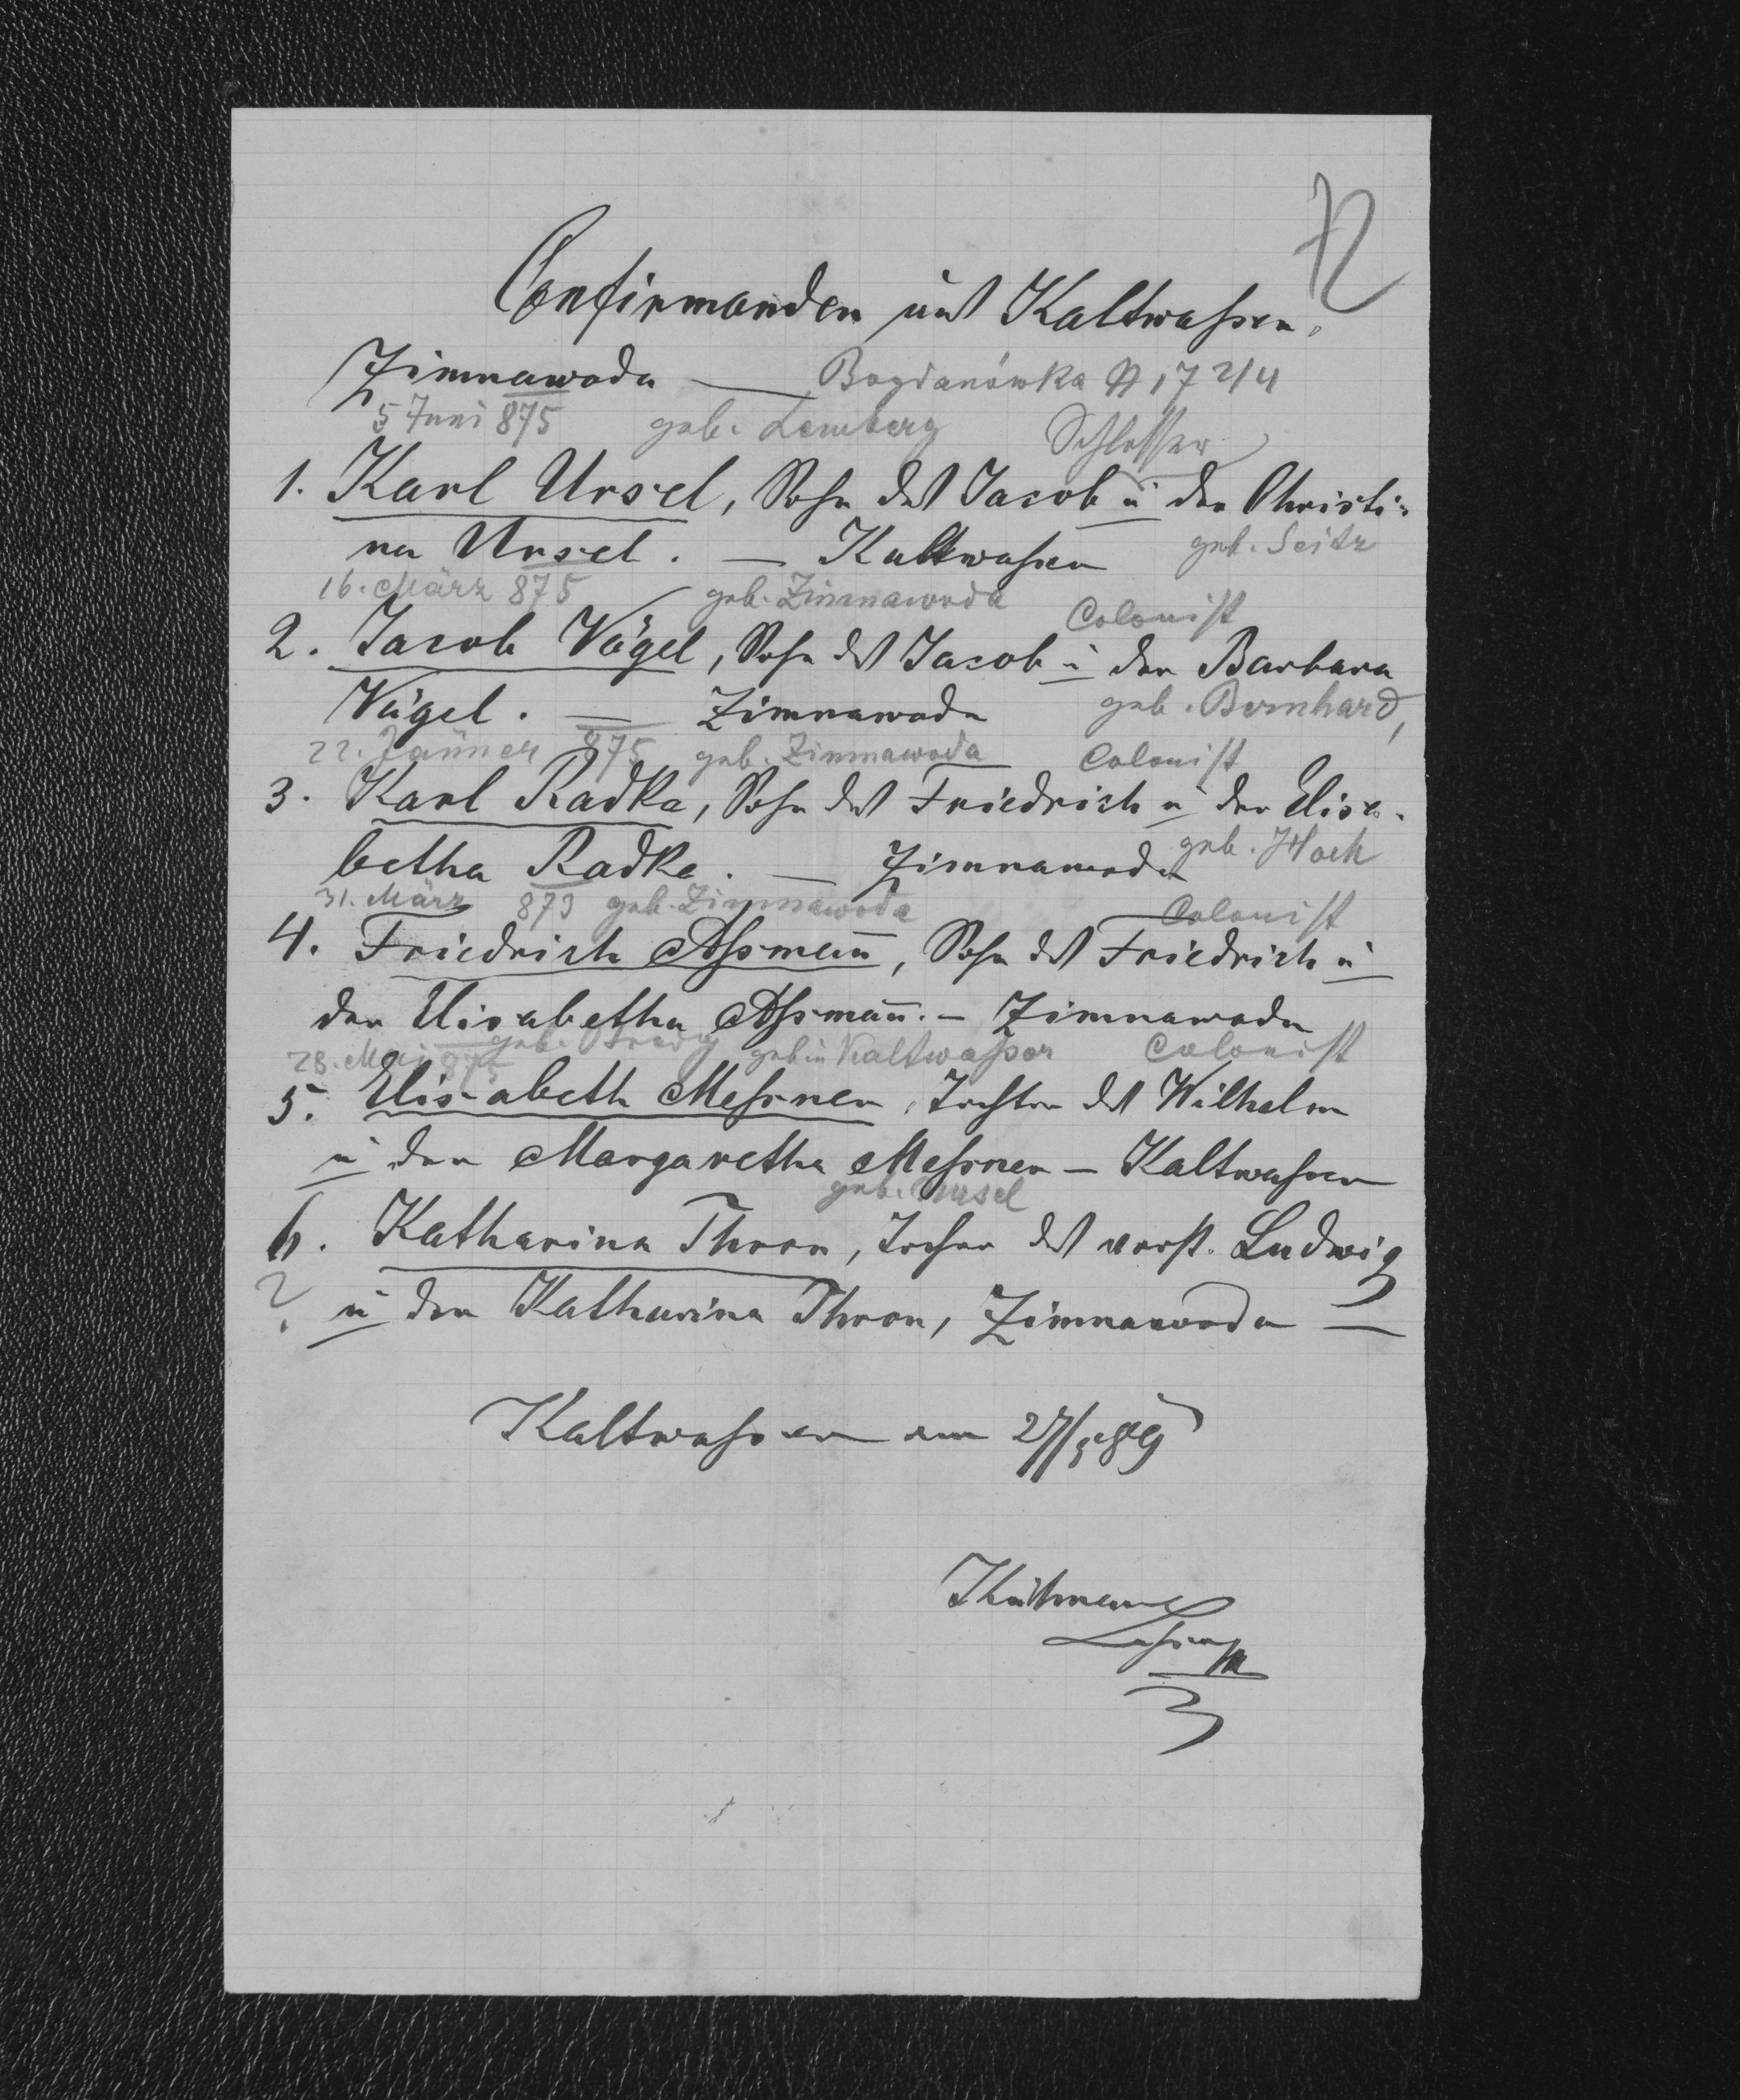 72
Confirmanden aus Kaltwasser,
Zimnawoda — Bogdanówka № 17 2/4
5 Juni 875 geb. Lemberg Schlosser
1. Karl Ursel, Sohn des Jacob u der Christi-
na Ursel. — Kaltwasser geb. Seitz
16. März 875 geb. Zimnawoda Colonist
2. Jacob Vögel, Sohn des Jacob u der Barbara
Vögel. — Zimnawoda geb. Bernhard,
22. Jänner 875 geb. Zimnawoda Colonist
3. Karl Radke, Sohn des Friedrich u der Elisa-
betha Radke. — Zimnawoda geb. Hoch
31. März 873 geb. Zimnawoda Colonist
4. Friedrich Assmann̄, Sohn des Friedrich u
der Elisabetha Assman̄. — Zimnawoda
geb.
28. Mai 875 geb in Kaltwasser Colonist
5. Elisabeth Messner, Tochter des Wilhelm
u der Margaretha Messner — Kaltwasser
geb. Ursel
6. Katharina Thron, Tochter des verst. Ludwig
? u der Katharina Thron, Zimnawoda —
Kaltwasser am 27/5 89